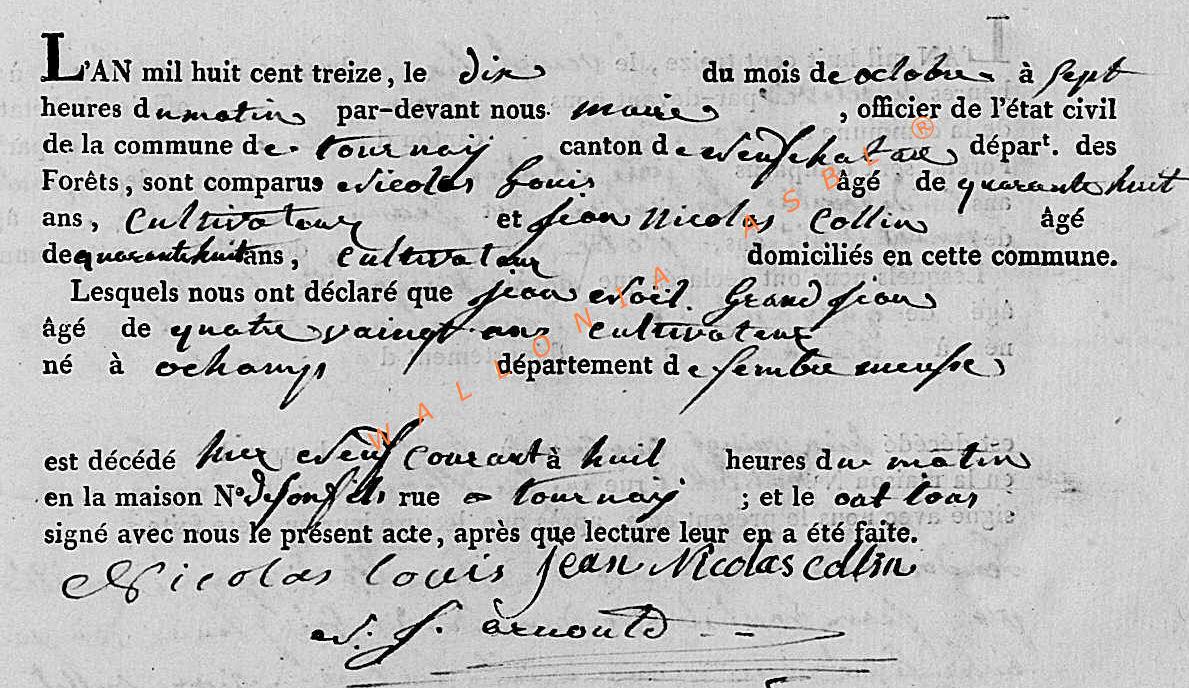 L'AN mil huit cent treize, le dix du mois de octobre à sept
heures du matin par-devant nous maire, officier de l'état civil
de la commune de tournay canton de Neufchateau dépar^t. des
Forêts, sont comparus Nicolas Louis âgé de quarante huit
ans, Cultivateur et Jean Nicolas Collin âgé
de quarante huit ans, Cultivateur domiciliés en cette commune.
Lesquels nous ont déclaré que Jean Noël Grand Jean
âgé de quatre vaingt ans Cultivateur
né à ochamps département de Sembre meuse
est décédé hier Neuf Courant à huit heures du matin
en la maison N° de son fils rue a tournay ; et le ont tous
signé avec nous le présent acte, après que lecture leur en a été faite.
Nicolas Louis Jean Nicolas Collin
N. J. arnould
WALLONIA ASBL ®